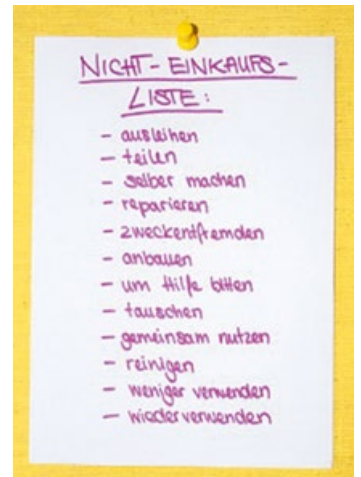 NICHT-EINKAUFS-
LISTE:
- ausleihen
- teilen
- selber machen
- reparieren
- zweckentfremden
- anbauen
- um Hilfe bitten
- tauschen
- gemeinsam nutzen
- reinigen
- weniger verwenden
- wiederverwenden